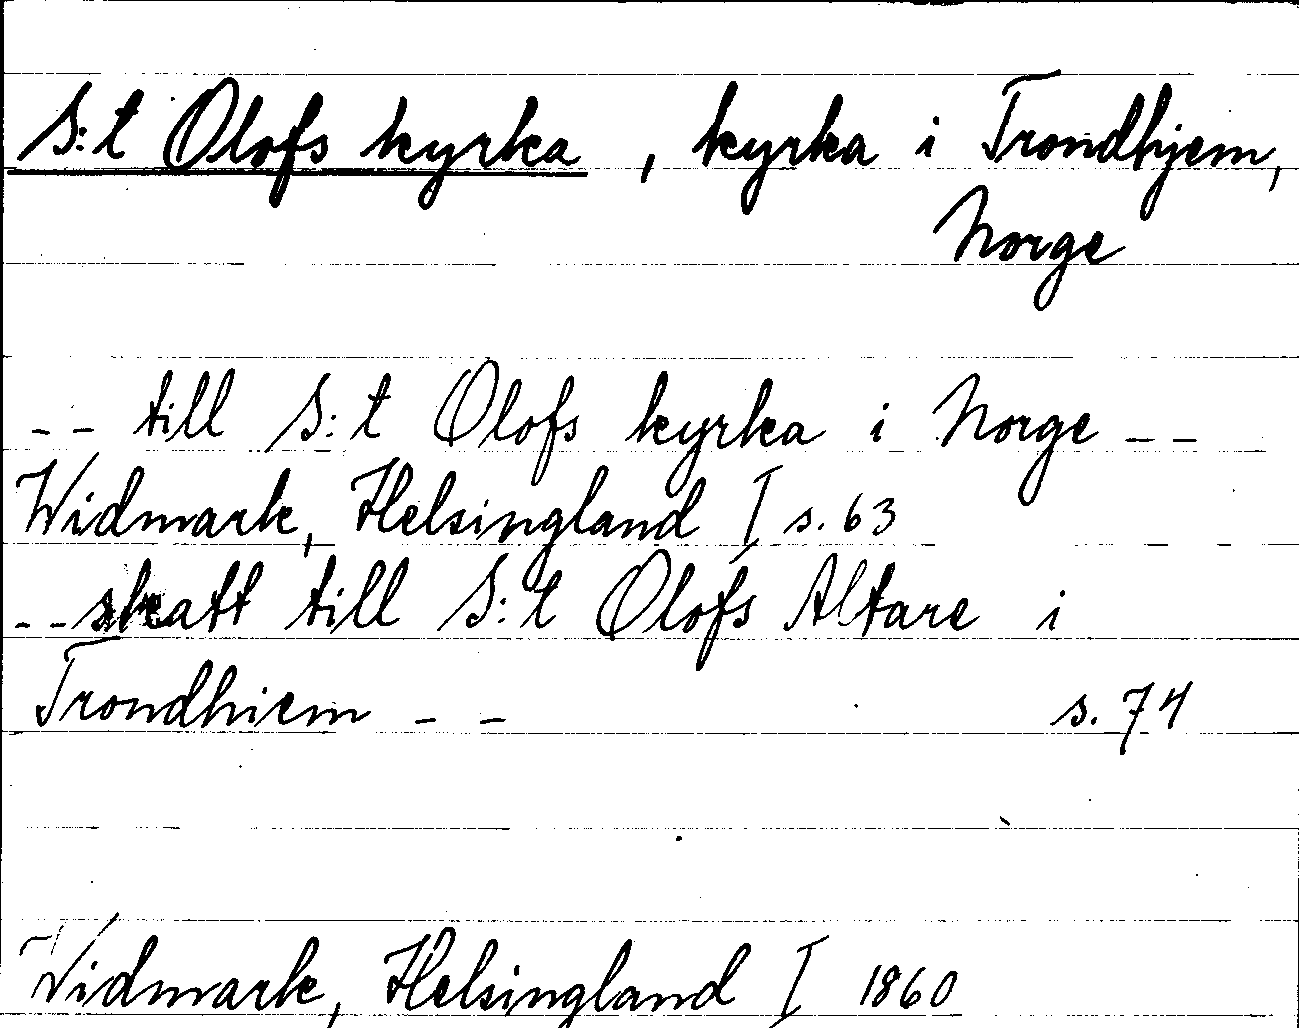 S:t Olofs kyrka, kyrka i Trondhjem,
Norge
-- till S:t Olofs kyrka i Norge --
Widmark, Helsingland I s. 63
-- skatt till S:t Olofs Altare i
Trondhiem -- s. 74
Widmark, Helsingland I 1860